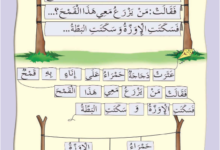 فَقَالَتْ: مَنْ يَزْرَعُ مَعِي هَذَا الْقَمْحَ؟...
فَسَكَتَتِ الإِوَزَّةُ وَ سَكَتَتِ البَطَّةُ...
عَثَرَتْ دَجَاجَةٌ حَمْرَاءُ عَلَى إِنَاءٍ بِهِ قَمْحٌ
فَقَالَتْ مَنْ يَزْرَعُ مَعِي هَذَا الْقَمْحَ
فَسَكَتَتِ الإِوَزَّةُ وَ سَكَتَتِ البَطَّةُ
حَمْرَاءُ الإِوَزَّةُ